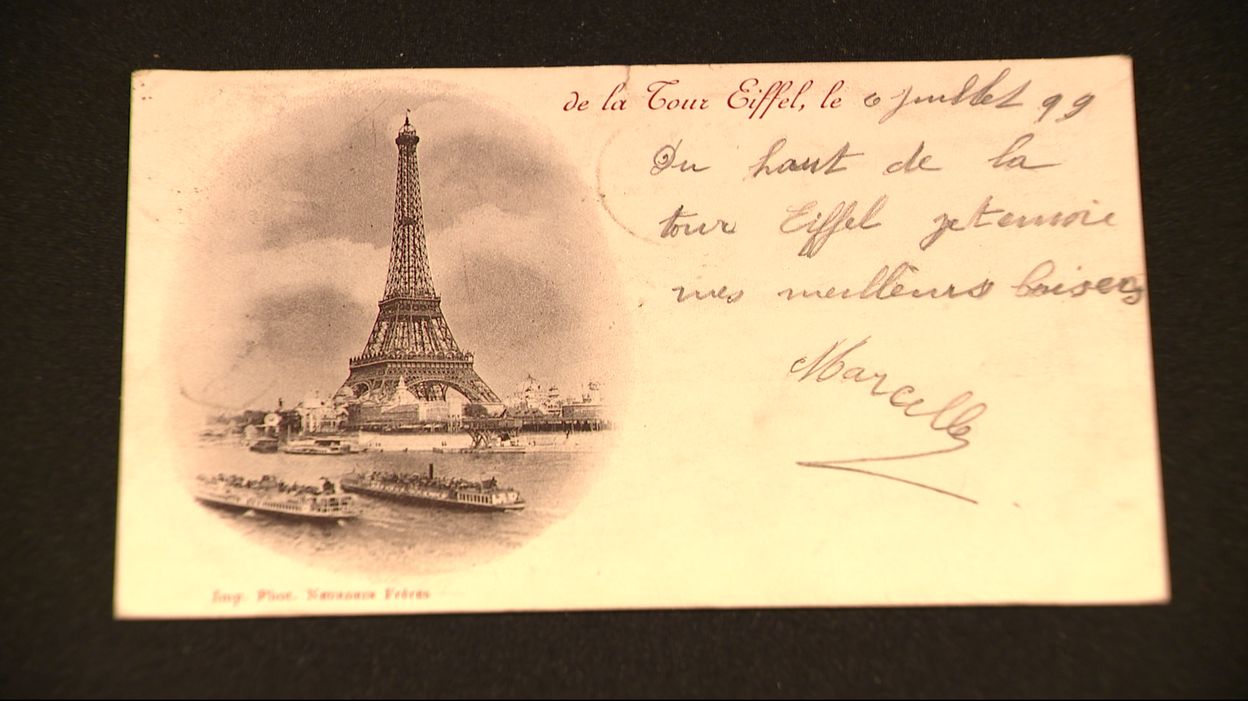 de la Tour Eiffel, le 6 juillet 99
Du haut de la
tour Eiffel je t'envoie
mes meilleurs baisers
Marcelle
Imp. Phot. Neurdein Frères